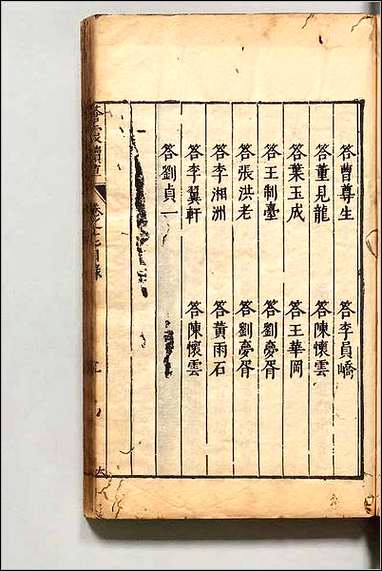 答曹尊生 答李員嶠
答董見龍 答陳懷雲
答葉玉成 答王華岡
答王制臺 答劉夢胥
答張洪老 答劉夢胥
答李湘洲 答黃雨石
答李翼軒 答陳懷雲
答劉貞一
蒼霞續草 卷之七目錄